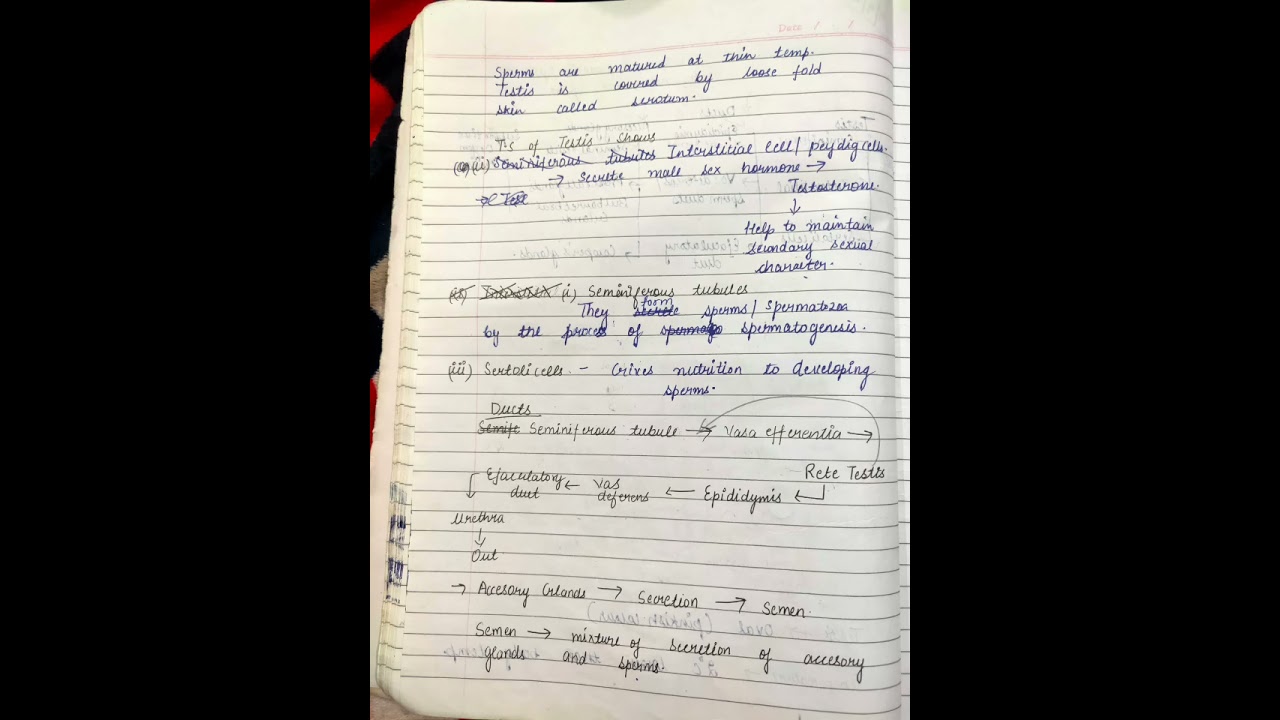 Date / /
Sperms are matured at thin temp.
Testis is covered by loose fold
skin called scrotum.
T.S of Testis Shows
(ii) Seminiferous tubules Intersticial Cell/ peydig cells.
→ Secrete male sex hormone →
Testosterone.
↓
Help to maintain
secondary sexual
character.
(i) Seminiferous tubules
They secrete form sperms/ Spermatozoa
by the process of spermago spermatogenesis.
(iii) Sertoli cells. - Gives nutrition to developing
sperms.
Ducts
Semife Seminiferous tubule → Vasa efferentia →
Rete Testis
Ejaculatory duct ← Vas deferens ← Epididymis ←
Urethra
↓
Out
→ Accesory Glands → Secretion → Semen.
Semen → mixture of secretion of accesory
glands and sperms.